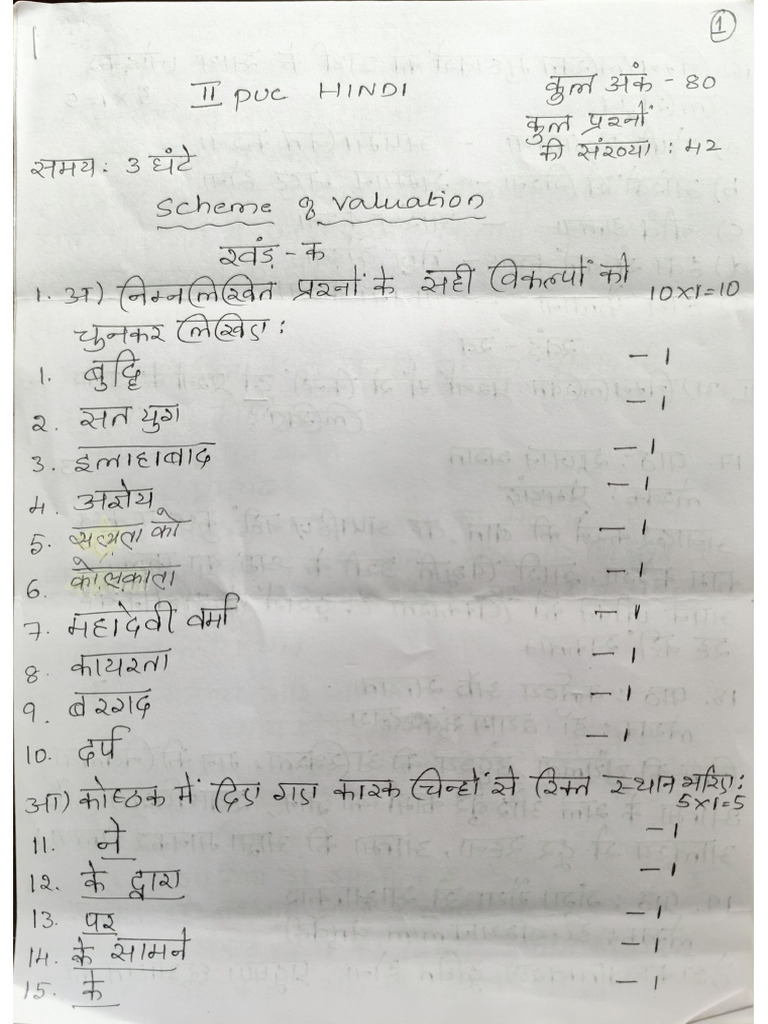 1
II PUC HINDI
कुल अंक - 80
कुल प्रश्नों
की संख्या : 42
समय: 3 घंटे
Scheme of Valuation
खंड - क
1. अ) निम्नलिखित प्रश्नों के सही विकल्पों को 10x1=10
चुनकर लिखिए :
1. बुद्धि - 1
2. सत युग - 1
3. इलाहाबाद - 1
4. अज्ञेय - 1
5. सत्यता को - 1
6. कोलकाता - 1
7. महादेवी वर्मा - 1
8. कायरता - 1
9. बरगद - 1
10. दर्प - 1
आ) कोष्ठक में दिए गए कारक चिन्हों से रिक्त स्थान भरिए :
5x1=5
11. ने - 1
12. के द्वारा - 1
13. पर - 1
14. के सामने - 1
15. के - 1